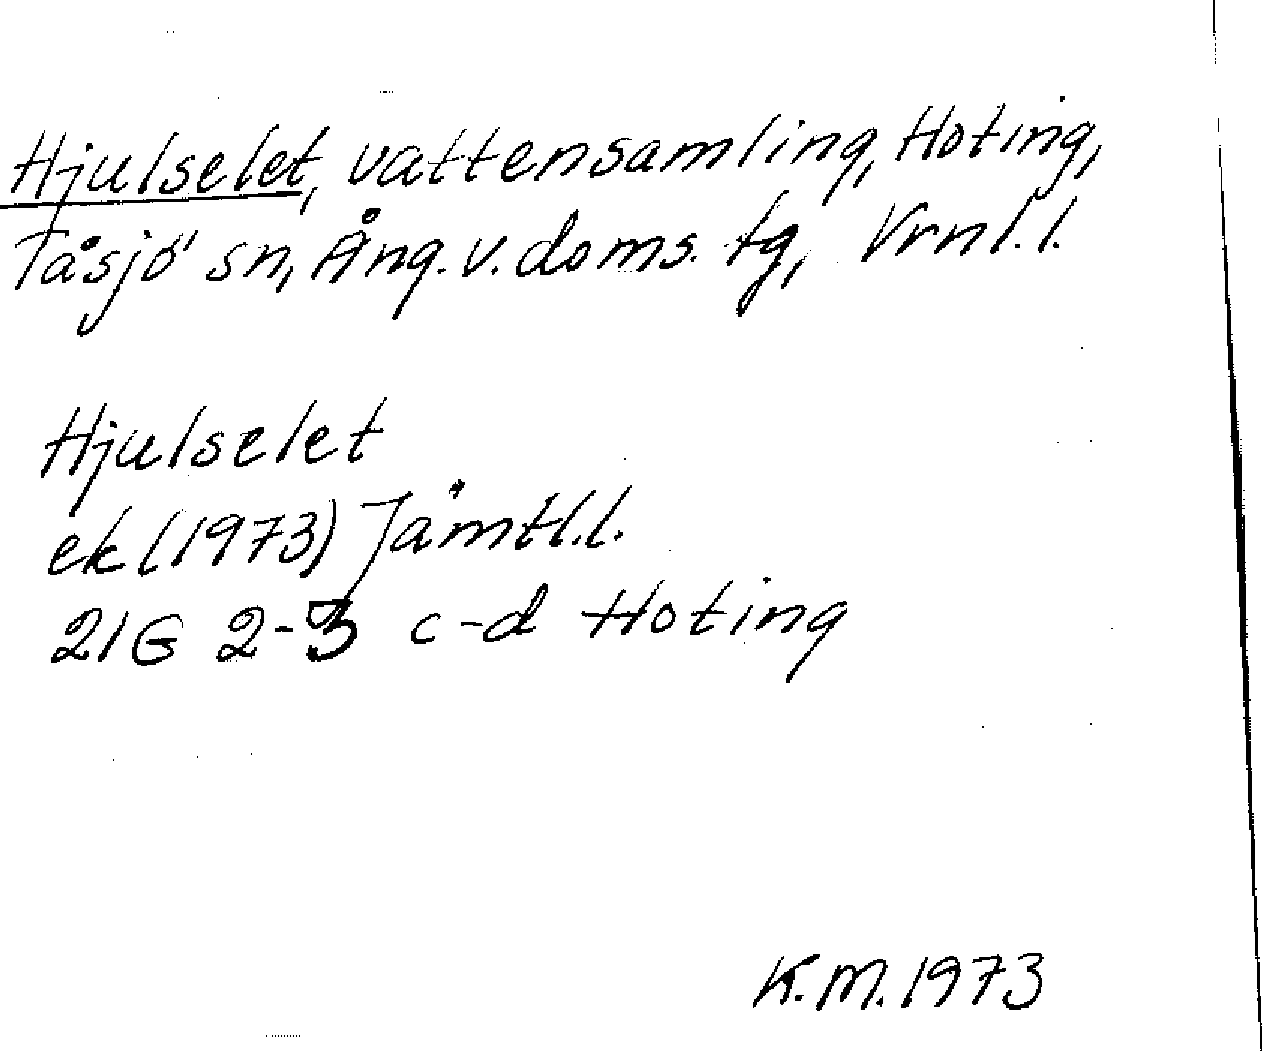 Hjulselet, vattensamling, Hoting,
Tåsjö sn, Ång. v. doms. tg, Vrnl. l.
Hjulselet
ek (1973) Jämtl. l.
21G 2-3 c-d Hoting
K.M. 1973